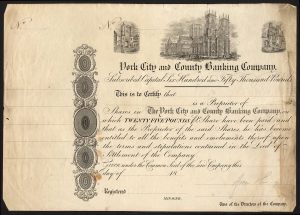 No.
York City and County Banking Company.
Subscribed Capital Six Hundred and Fifty Thousand Pounds.
This is to Certify that
is a Proprietor of
Shares in The York City and County Banking Company, on
which TWENTY FIVE POUNDS ⅌ Share have been paid; and
that as the Proprietor of the said Shares he has become
entitled to all the benefits and emoluments thereof upon
the terms and stipulations contained in the Deed of
Settlement of the Company.
Given under the Common Seal of the said Company this
day of 18
Registered
MANAGER.
One of the Directors of the Company.